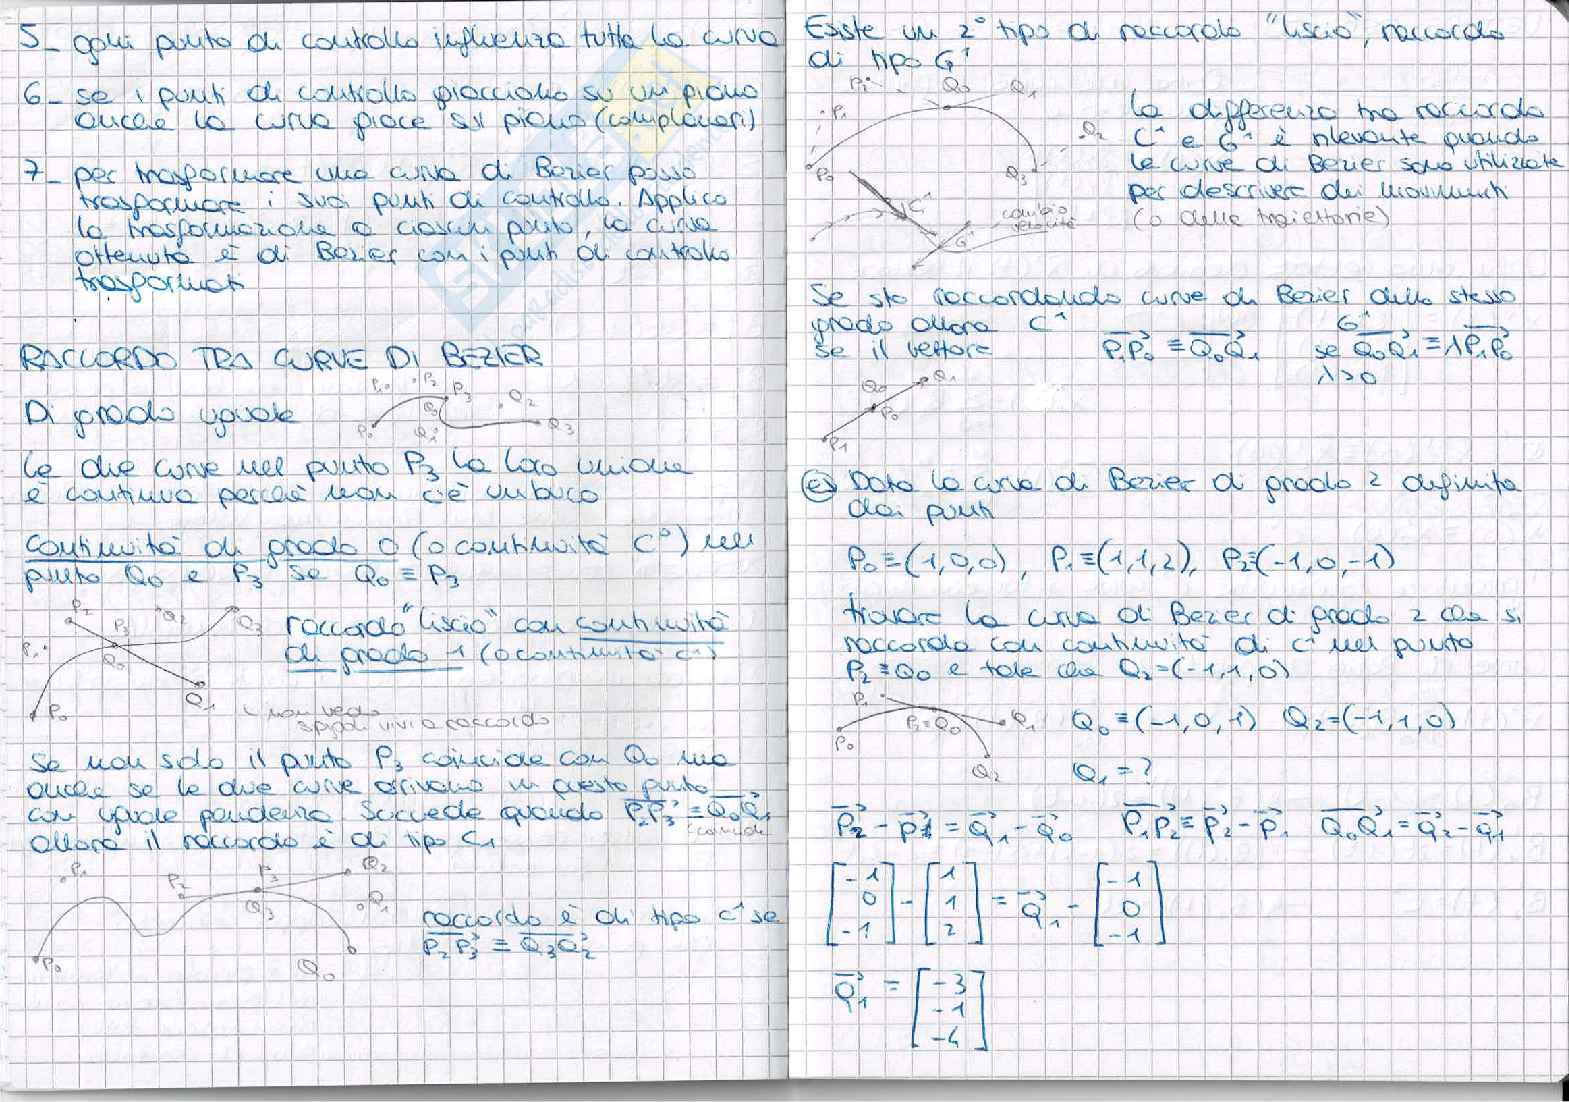 5_ ogni punto di controllo influenza tutta la curva
6_ se i punti di controllo giacciono su un piano
anche la curva giace sul piano (complanari)
7_ per trasformare una curva di Bezier posso
trasformare i suoi punti di controllo. Applico
la trasformazione a ciascun punto, la curva
ottenuta è di Bezier con i punti di controllo
trasformati
RACCORDO TRA CURVE DI BEZIER
P1 P2 P3
Di grado uguale
P0 Q0 Q1 Q2 Q3
le due curve nel punto P3 la loro unione
è continua perché non c'è un buco
continuità di grado 0 (o continuità C⁰) nel
punto Q0 e P3 se Q0 ≡ P3
P2 P3 Q2 Q3
P1 Q0
raccordo "liscio" con continuità
di grado 1 (o continuità C¹)
P0 Q1
non vedo
spigoli vivi a raccordo
se non solo il punto P3 coincide con Q0 ma
anche se le due curve arrivano in questo punto
con uguale pendenza. Succede quando P2P3 ≡ Q0Q1
allora il raccordo è di tipo C1
P1 P2 P3 Q2
Q3 Q1
raccordo è di tipo C¹ se
P2P3 ≡ Q3Q2
P0 Q0
Esiste un 2° tipo di raccordo "liscio", raccordo
di tipo G¹
P2 Q0 Q1
P1 Q2
P0 Q3
la differenza tra raccordo
C¹ e G¹ è rilevante quando
le curve di Bezier sono utilizzate
per descrivere dei movimenti
(o delle traiettorie)
C¹
G¹
cambio
velocità
Se sto raccordando curve di Bezier dello stesso
grado allora C¹ G¹
se il vettore P1P0 ≡ Q0Q1 se Q0Q1 ≡ λP1P0
λ>0
Q0 Q1
P0
P1
es Data la curva di Bezier di grado 2 definita
dai punti
P0≡(1,0,0), P1≡(1,1,2), P2≡(-1,0,-1)
trovare la curva di Bezier di grado 2 che si
raccorda con continuità di C¹ nel punto
P2≡Q0 e tale che Q2=(-1,1,0)
P1 P2=Q0 Q1
P0 Q2
Q0≡(-1,0,1) Q2=(-1,1,0)
Q1=?
P2 - P1 = Q1 - Q0 P1P2 ≡ P2 - P1 Q0Q1 = Q2 - Q1
[-1 0 -1] - [1 1 2] = Q1 - [-1 0 -1]
Q1 = [-3 -1 -4]